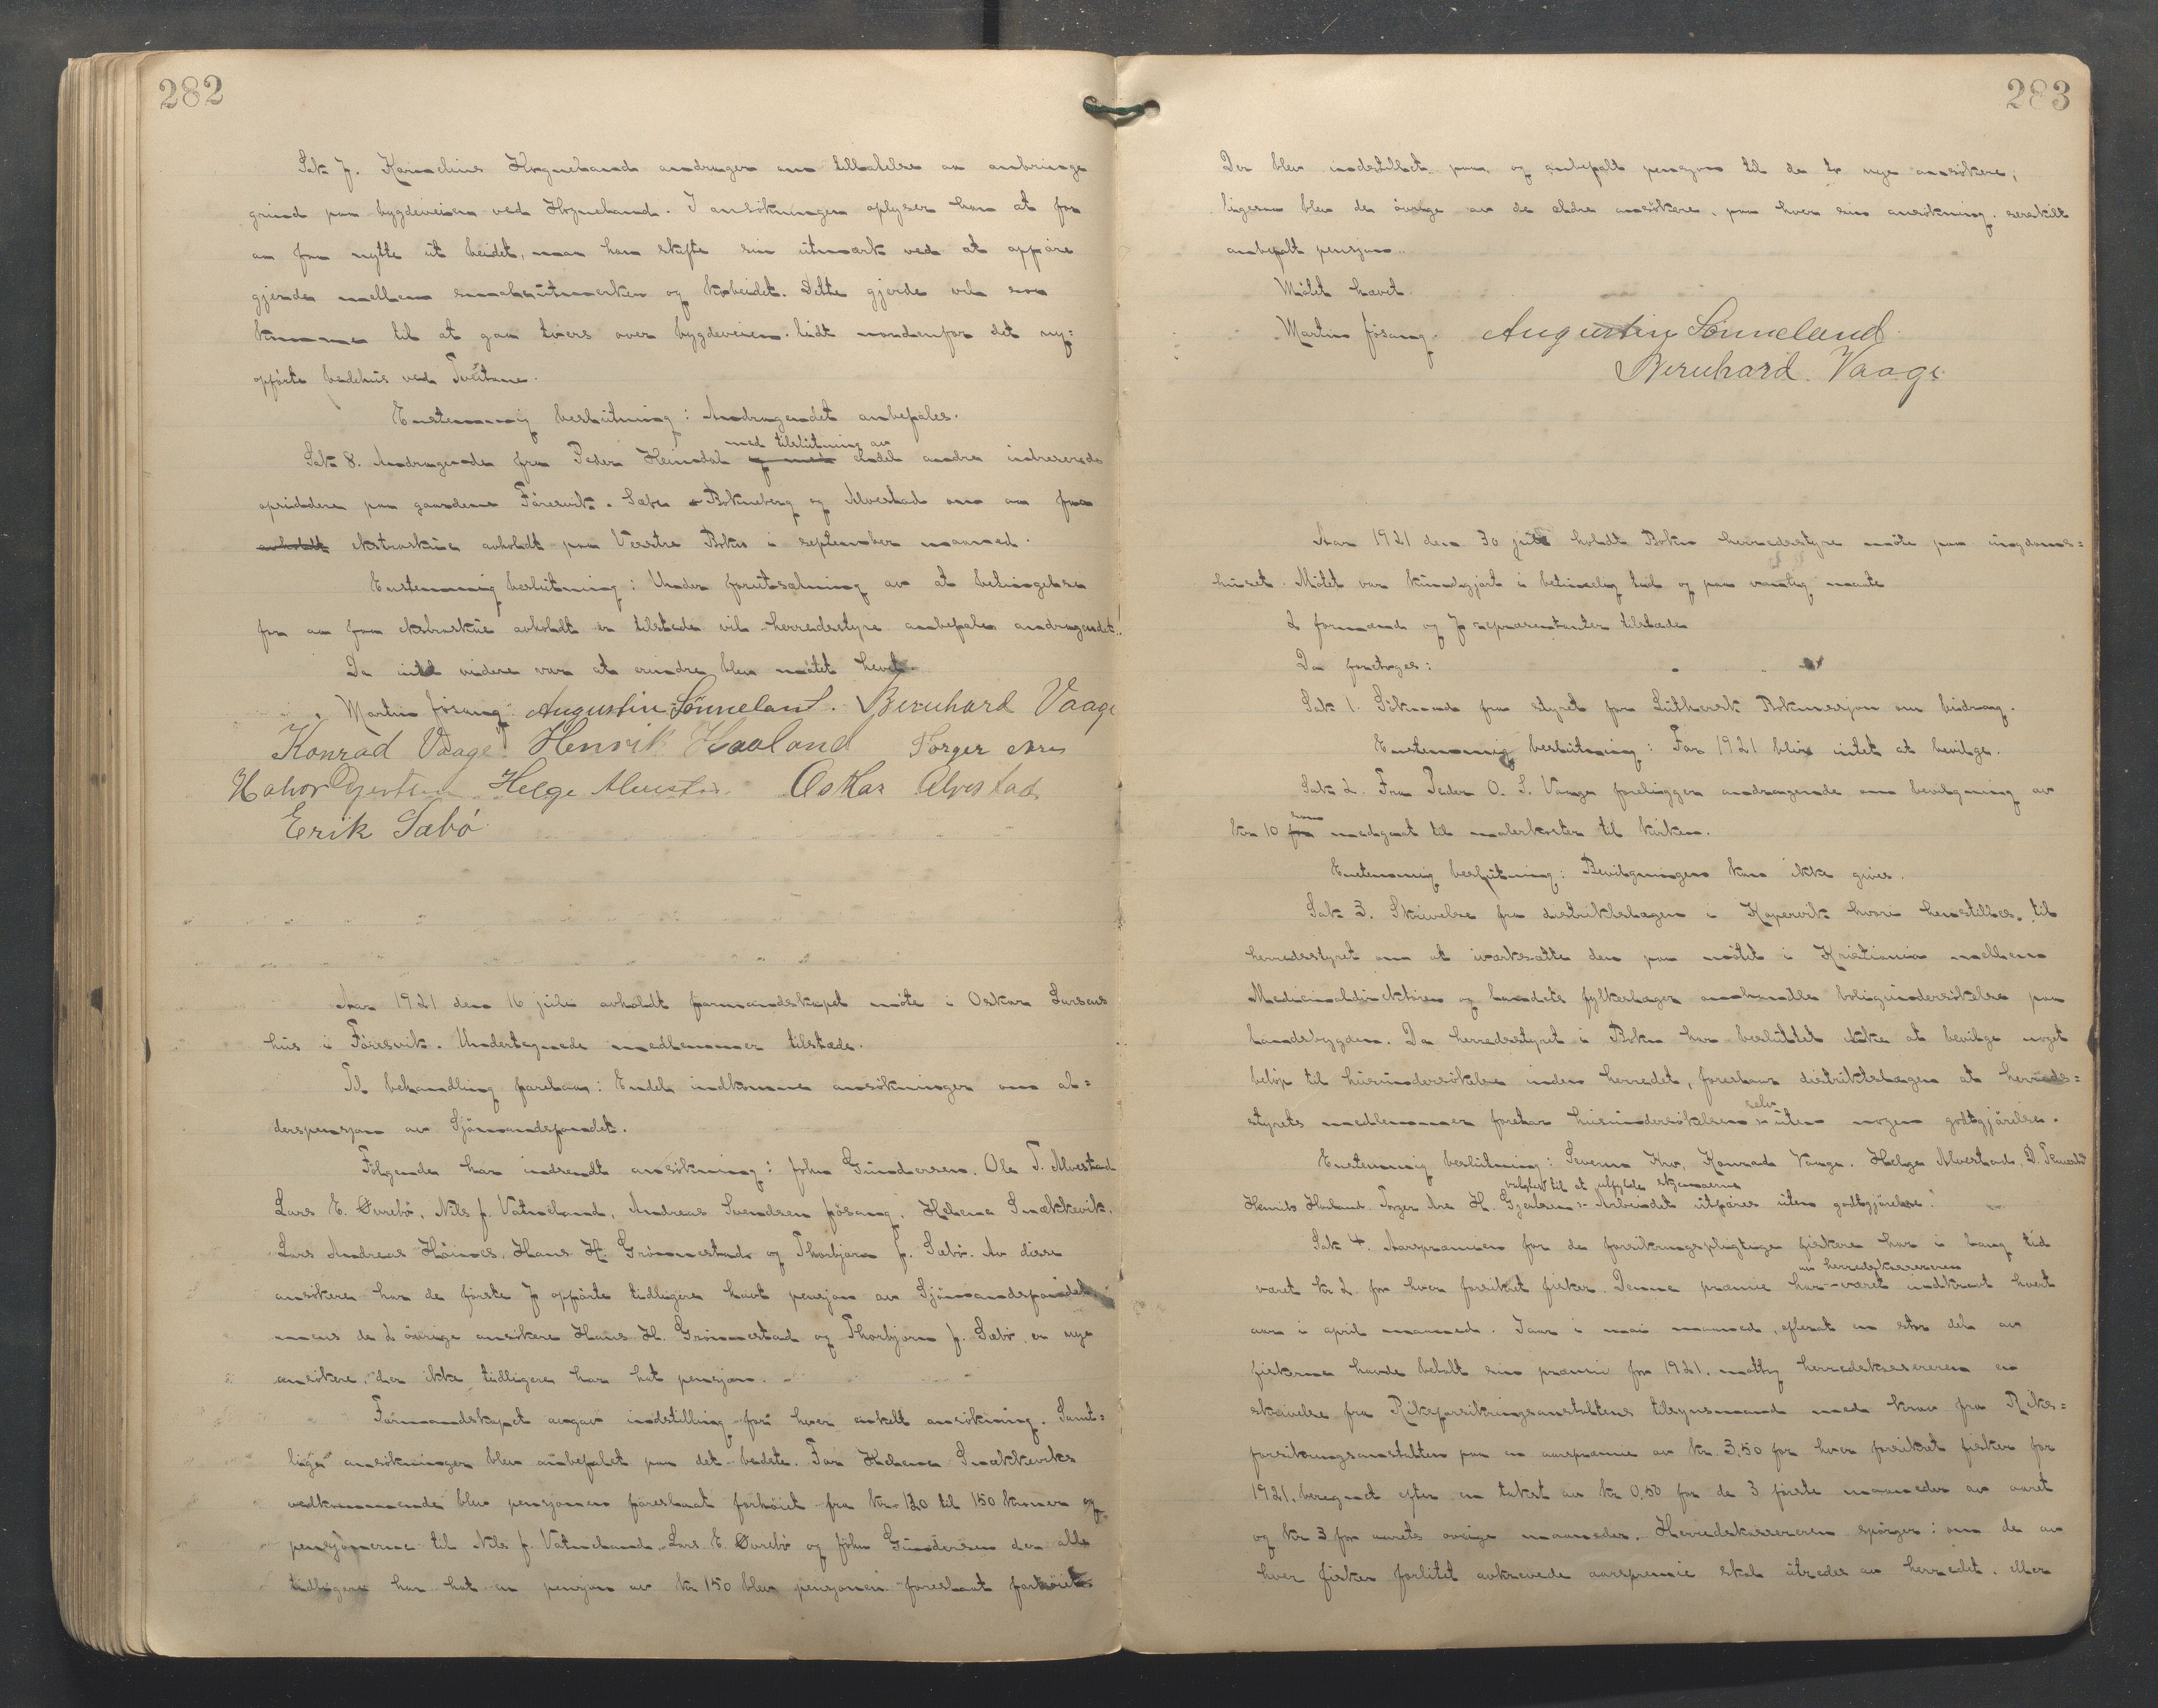 282
Sak 7. Karinelius Hognaland andrager om tillatelse aa anbringe
grind paa bygdeveien ved Hognaland. I ansökningen oplyser han at for
aa faa nytte ut beidet, maa han skifte sin utmark ved at oppföre
gjerde mellem smaleutmarken og kubeidet. Dette gjerde vil saa
komme til at gaa tvers over bygdeveien lidt nordenfor det ny-
opförte bedehus ved Tveitane.
Enstemmig beslutning: Andragendet anbefales.
med tilslutning av
Sak 8. Andragende fra Peder Heimdal og med endel andre intreserede
opsiddere paa gaardene Föresvik, Sæbø Bokneberg og Alvestad om aa faa
avholdt ekstraskue avholdt paa Vestre Bokn i september maaned.
Enstemmig beslutning: Under forutsætning av at betingelse
for aa faa ekstraskue avholdt er tilstede vil herredsstyre anbefale andragendet.
Da intet videre var at erindre blev mötet hevet.
Martin Jösang. Augustin Sönneland. Bernhard Vaage
Konrad Vaage Henrik Haaland Torger Are
Halvor Gjertsen Helge Alvestad Oskar Alvestad
Erik Sæbö
Aar 1921 den 16 juli avholdt formandskapet möte i Oskar Larsens
hus i Föresvik. Undertegnede medlemmer tilstede.
Til behandling forelaa: Endel indkomne ansökninger om al-
derspensjon av Sjömandsfondet.
Fölgende har indsendt ansökning: John Gundersen, Ole T. Alvestad
Lars E. Øvrebö, Nils J. Vatneland, Andreas Svendsen Jösang, Helene Snækkevik,
Lars Andreas Höines, Hans H. Grönnestad og Thorbjörn J. Sæbö. Av disse
ansökere har de förste 7 opförte tidligere havt pensjon av Sjömandsfondet
mens de 2 övrige ansökere Hans H. Grönnestad og Thorbjörn J. Sæbö, er nye
ansökere, der ikke tidligere har hat pensjon.
Formandskapet avgav indstilling for hver enkelt ansökning. Samt-
lige ansökninger blev anbefalet paa det bedste. For Helene Snækkeviks
vedkommende blev pensjonen foreslaat forhöiet fra kr. 120 til 150 kroner og
pensjonerne til Nils J. Vatneland, Lars E. Øvrebö og John Gundersen der alle
tidligere har hat en pensjon av kr 150 blev pensjonen foreslaat forhöiet.
283
Der blev indstillet paa, og anbefalt pensjon til de to nye ansökere,
ligesom blev de övrige av de eldre ansökere, paa hver sin ansökning, serskilt
anbefalt pensjon.
Mötet hævet.
Martin Jösang. Augustin Sönneland.
Bernhard Vaage
Aar 1921 den 30 juli holdt Bokn herredsstyre möte paa ungdoms-
huset. Mötet var kundgjort i betimelig tid og paa vanlig maate
2 formænd og 7 repræsentanter tilstede
Da foretoges:
Sak 1. Söknad fra styret for Luthersk Bokmssjon om bidrag.
Enstemmig beslutning: For 1921 blir intet at bevilge.
Sak 2. Fra Peder O. S. Vaage foreligger andragende om bevilgning av
som
kr 10 for medgaat til malerkoster til kirken.
Enstemmig beslutning: Bevilgningen kan ikke gives.
Sak 3. Skrivelse fra distriktslægen i Kopervik hvori henstilles til
herredsstyret om at iverksætte den paa mötet i Kristiania mellem
Medicinaldirektören og landets fylkeslæger omhandle boligundersökelse paa
landsbygden. Da herredsstyret i Bokn har besluttet ikke at bevilge noget
belöp til husundersökelse inden herredet, foreslaar distriktslægen at herreds-
selv
styrets medlemmer foretar husundersökelsen uten nogen godtgjörelse.
Enstemmig beslutning: Severin Kro, Konrad Vaage, Helge Alvestad,
valgtes til at utfylde skjemaerne
Henrik Haaland Torger Are H. Gjertsen Arbeidet utföres uten godtgjörelse.
Sak 4. Aarspræmien for de forsikringspligtige fiskere har i lang tid
av herredskassereren
været kr 2 for hver forsikret fisker. Denne præmie har været indkrævt hvert
aar i april maaned. Iaar i mai maaned, efterat en stor del av
fiskerne havde betalt sin præmi for 1921, mottog herredskassereren en
skrivelse fra Riksforsikringsanstaltens tilsynsmand med krav fra Riks-
forsikringsanstalten paa en aarspræmie av kr. 3,50 for hver forsikret fisker for
1921, beregnet efter en takst av kr 0,50 for de 3 förste maaneder av aaret
og kr 3 for aarets övrige maaneder. Herredskassereren spörger: om de av
hver fisker forlitet avkrævede aarspremie skal utredes av herredet, eller